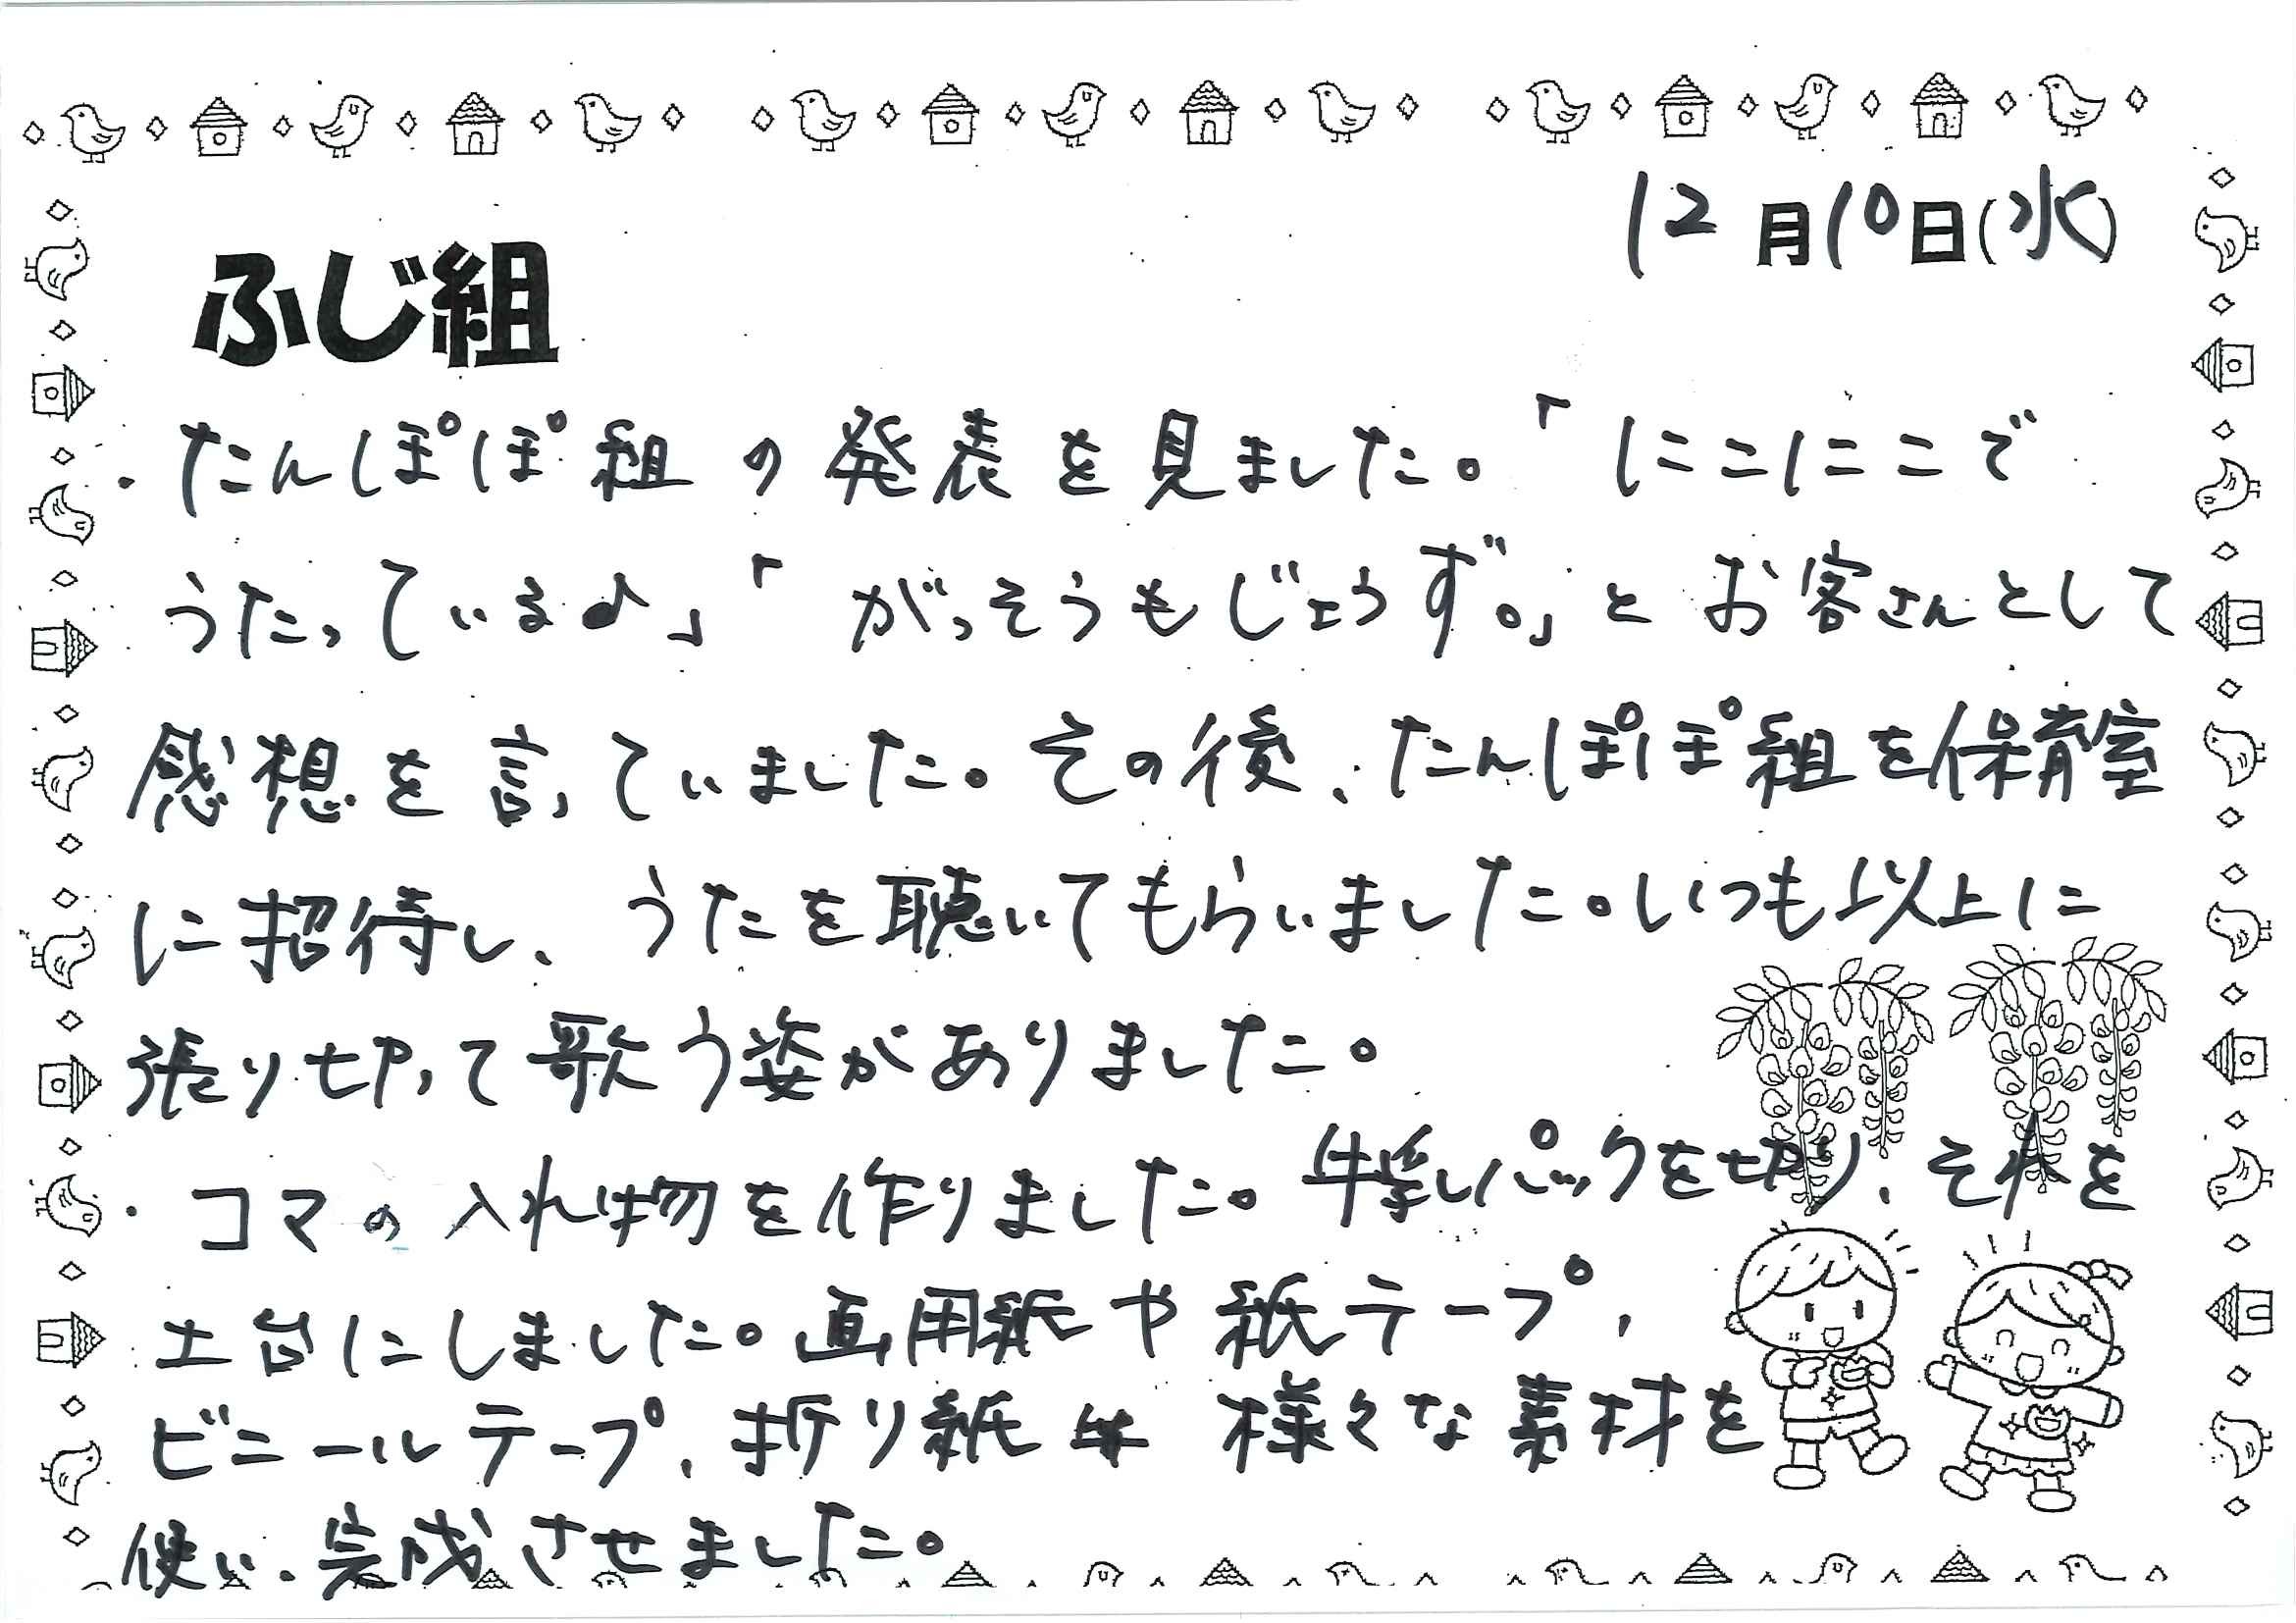 12月10日(水)
ふじ組
・たんぽぽ組の発表を見ました。「にこにこで
うたっている♪」「がっそうもじょうず。」とお客さんとして
感想を言っていました。その後、たんぽぽ組を保育室
に招待し、うたを聴いてもらいました。いつも以上に
張り切って歌う姿がありました。
・コマの入れ物を作りました。牛乳パックを切り、それを
土台にしました。画用紙や紙テープ、
ビニールテープ、折り紙 様々な素材を
使い、完成させました。